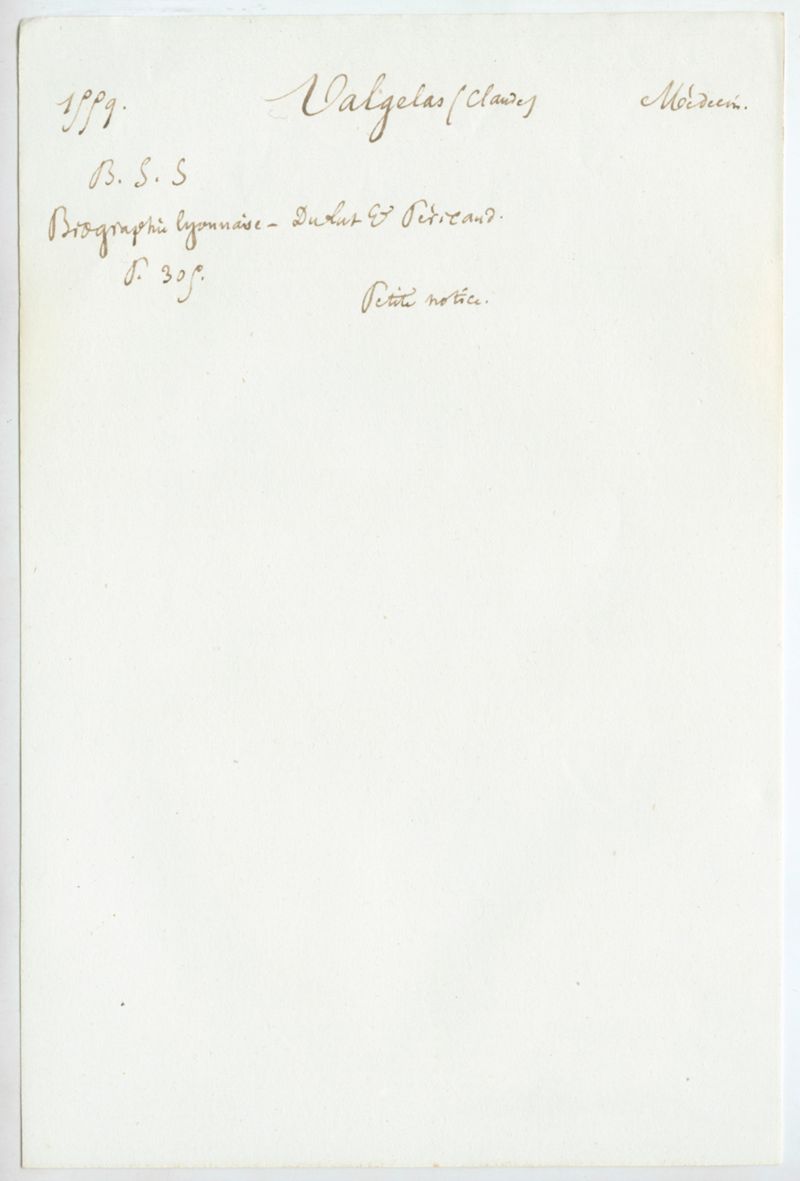 1559. Valgelas (Claude) Médecin.
B. S. S
Biographie lyonnaise - Dulut & Péricaud.
P. 305.
Petite notice.